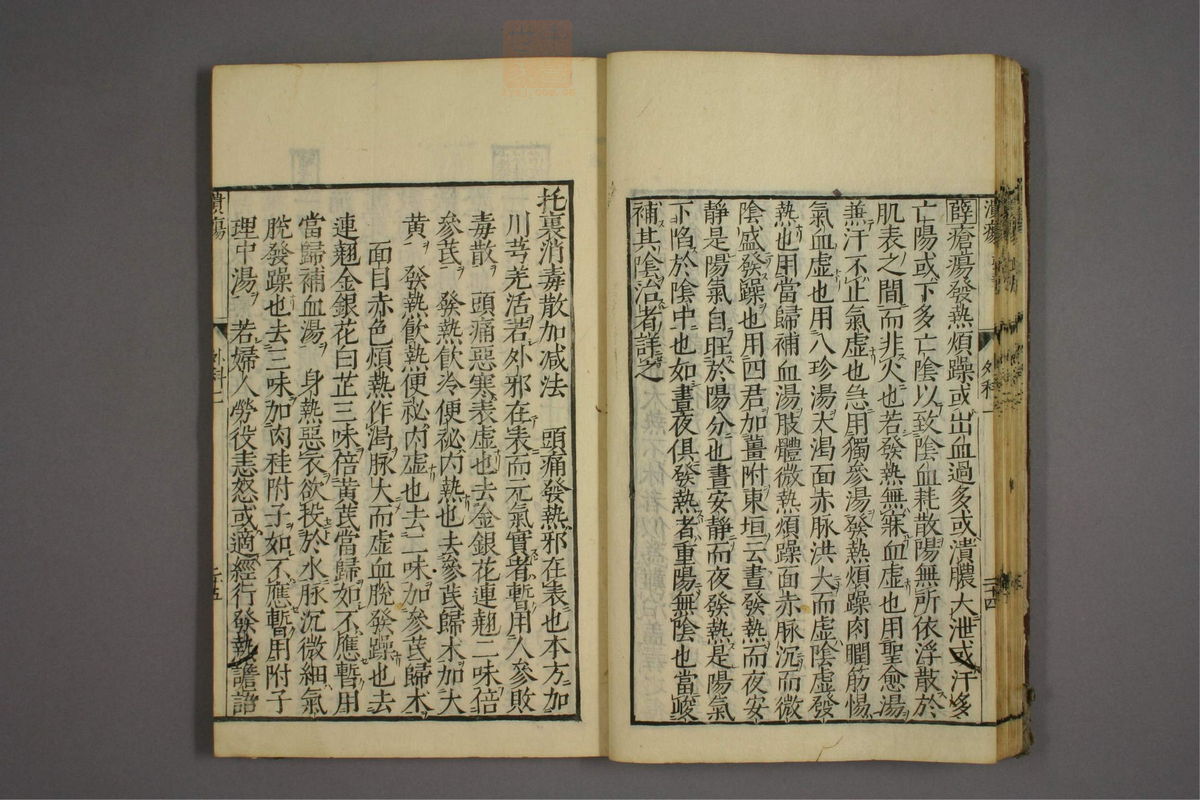 薛瘡瘍發熱煩躁或出血過多或潰膿大泄或汗多
亡陽或下多亡陰以致陰血耗散陽無所依浮散於
肌表之間而非火也若發熱無寐血虛也用聖愈湯
兼汗不止氣虛也急用獨參湯發熱煩躁肉瞤筋惕
氣血虛也用八珍湯大渴面赤脉洪大而虛陰虛發
熱也用當歸補血湯肢體微熱煩躁面赤脉沉而微
陰盛發躁也用四君加薑附東垣云晝發熱而夜安
靜是陽氣自旺於陽分也晝安靜而夜發熱是陽氣
下陷於陰中也如晝夜俱發熱者重陽無陰也當峻
補其陰治者詳之
潰瘍
外科二
二十四
托裏消毒散加减法　頭痛發熱邪在表也本方加
川芎羌活若外邪在表而元氣實者暫用人參敗
毒散　頭痛惡寒表虛也去金銀花連翹二味倍
參芪　發熱飲冷便祕内熱也去參芪歸术加大
黄　發熱飲熱便祕内虛也去二味加參芪歸术
面目赤色煩熱作渴脉大而虛血脫發躁也去
連翹金銀花白芷三味倍黄芪當歸如不應暫用
當歸補血湯　身熱惡衣欲投於水脉沉微細氣
脫發躁也去三味加肉桂附子如不應暫用附子
理中湯　若婦人勞役恚怒或適經行發熱譫語
潰瘍
外科二
二十五